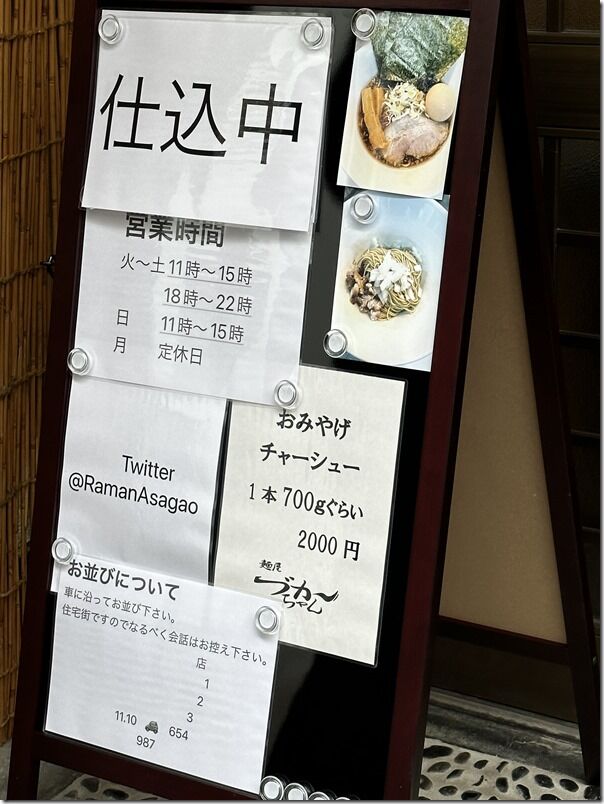 仕込中
営業時間
火〜土 11時〜15時
18時〜22時
日 11時〜15時
月 定休日
Twitter
@RamanAsagao
おみやげ
チャーシュー
1本700gぐらい
2000円
麺屋
づカ〜ちゃん
お並びについて
車に沿ってお並び下さい。
住宅街ですのでなるべく会話はお控え下さい。
店
1
2
3
11.10 🚗 654
987